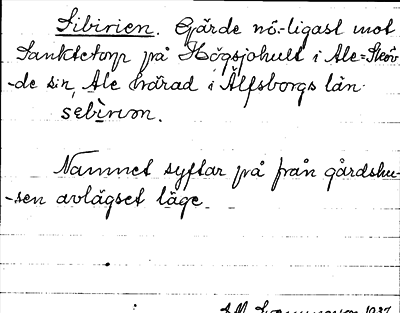 Sibirien. Gärde nö-ligast mot
Sanktetorp på Högsjohult i Ale-Sköv
-de s:n, Ale härad i Älfsborgs län.
sebìrıən.
Namnet syftar på från gårdshu-
-sen avlägset läge.
1937